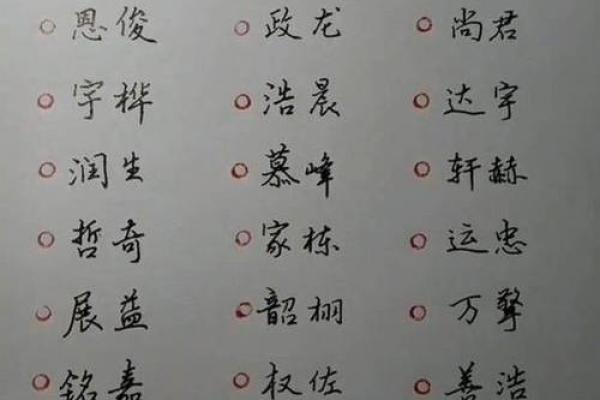 恩俊 政龙 尚君
宇桦 浩晨 达宇
润生 慕峰 轩赫
哲奇 家栋 运忠
展益 韶栩 万擎
铭嘉 权佐 善浩